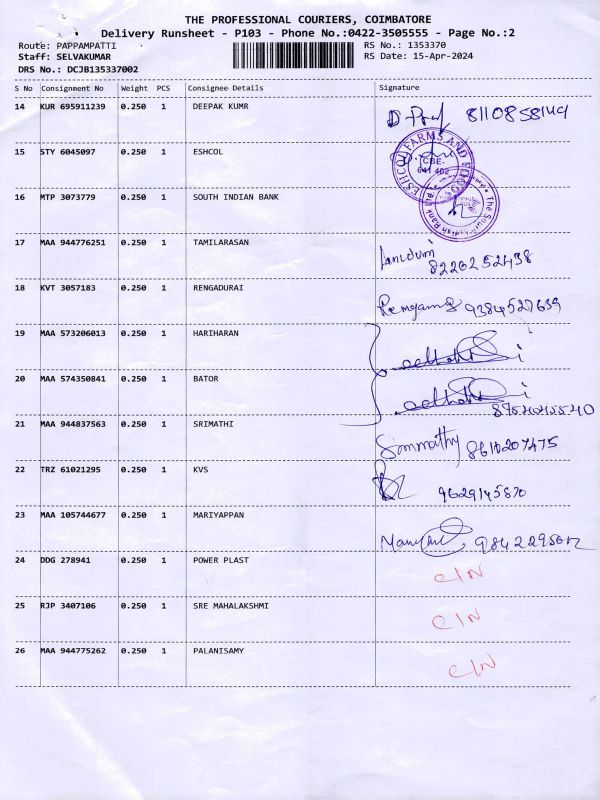 THE PROFESSIONAL COURIERS, COIMBATORE
Delivery Runsheet - P103 - Phone No.:0422-3505555 - Page No.:2
Route: PAPPAMPATTI
RS No.: 1353370
Staff: SELVAKUMAR
RS Date: 15-Apr-2024
DRS No.: DCJB135337002
S No Consignment No Weight PCS Consignee Details Signature
14 KUR 695911239 0.250 1 DEEPAK KUMR 8110858149
15 STY 6045097 0.250 1 ESHCOL
ESHCOL FARMS AND
CBE-
641 402
16 MTP 3073779 0.250 1 SOUTH INDIAN BANK
The South Indian Bank
17 MAA 944776251 0.250 1 TAMILARASAN
8220252438
18 KVT 3057183 0.250 1 RENGADURAI 9384527639
19 MAA 573206013 0.250 1 HARIHARAN
20 MAA 574350841 0.250 1 BATOR
21 MAA 944837563 0.250 1 SRIMATHI
8610207475
22 TRZ 61021295 0.250 1 KVS
9629145870
23 MAA 105744677 0.250 1 MARIYAPPAN
24 DDG 278941 0.250 1 POWER PLAST
C/N
25 RJP 3407106 0.250 1 SRE MAHALAKSHMI
C/N
26 MAA 944775262 0.250 1 PALANISAMY
C/N